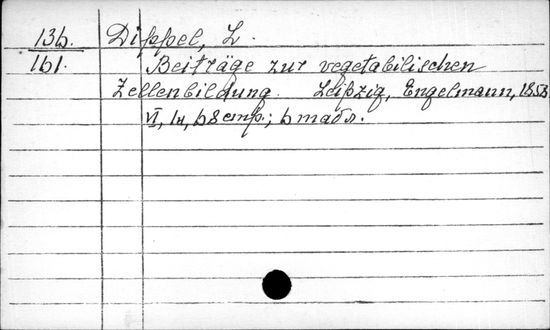 136. Dippel, L.
161. Beiträge zur vegetabilischen
Zellenbildung. Leipzig, Engelmann, 1858
VI, 1н, 68 стр.; 6 табл.